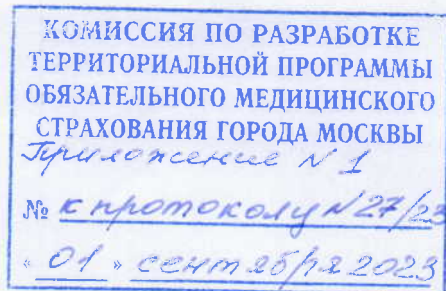 КОМИССИЯ ПО РАЗРАБОТКЕ
ТЕРРИТОРИАЛЬНОЙ ПРОГРАММЫ
ОБЯЗАТЕЛЬНОГО МЕДИЦИНСКОГО
СТРАХОВАНИЯ ГОРОДА МОСКВЫ
Приложение N 1
№ к протоколу N 27/23
«01» сентября 2023